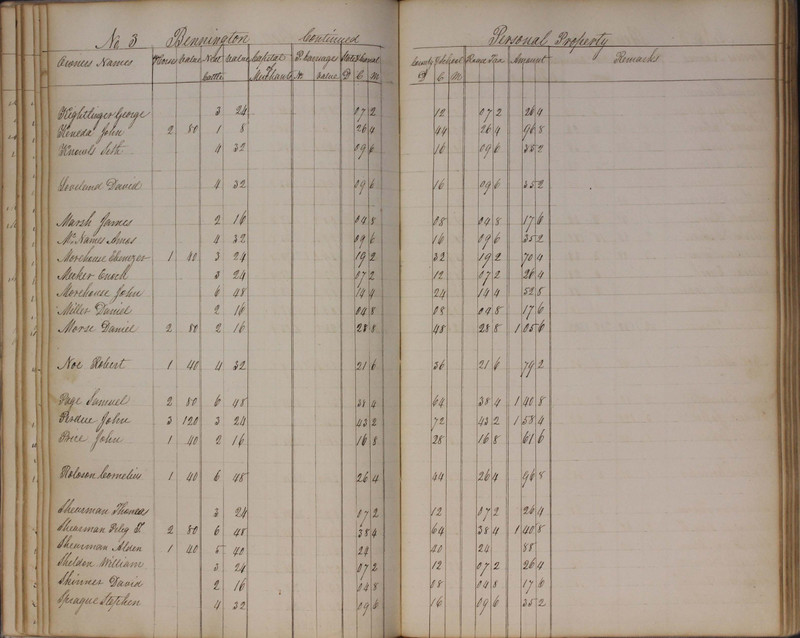 No 3 Bennington Continued Personal Property
Owners Names Horses Value Neat Cattle Value Capital Merchants P. Carriages No Value State & Canal D C M County & School D C M Road Tax Amount Remarks
George 3 24 07 2 12 07 2 26 4
Keneda John 2 80 1 8 26 4 44 26 4 96 8
Knowls Seth 4 32 09 6 16 09 6 35 2
Loveland David 4 32 09 6 16 09 6 35 2
Marsh James 2 16 04 8 08 04 8 17 6
McNames Amos 4 32 09 6 16 09 6 35 2
Morehouse Ebenezer 1 40 3 24 19 2 32 19 2 70 4
Meeker Enoch 3 24 07 2 12 07 2 26 4
Morehouse John 6 48 14 4 24 14 4 52 8
Miller Daniel 2 16 04 8 08 04 8 17 6
Morse Daniel 2 80 2 16 28 8 48 28 8 1 05 6
Noe Robert 1 40 4 32 21 6 36 21 6 79 2
Page Samuel 2 80 6 48 38 4 64 38 4 1 40 8
Perdue John 3 120 3 24 43 2 72 43 2 1 58 4
Price John 1 40 2 16 16 8 28 16 8 61 6
Roloson Cornelius 1 40 6 48 26 4 44 26 4 96 8
Shearman Thomas 3 24 07 2 12 07 2 26 4
Shearman Peleg 2 80 6 48 38 4 64 38 4 1 40 8
Shearman Alden 1 40 5 40 24 40 24 88
Sheldon William 3 24 07 2 12 07 2 26 4
Skinner David 2 16 04 8 08 04 8 17 6
Sprague Stephen 4 32 09 6 16 09 6 35 2